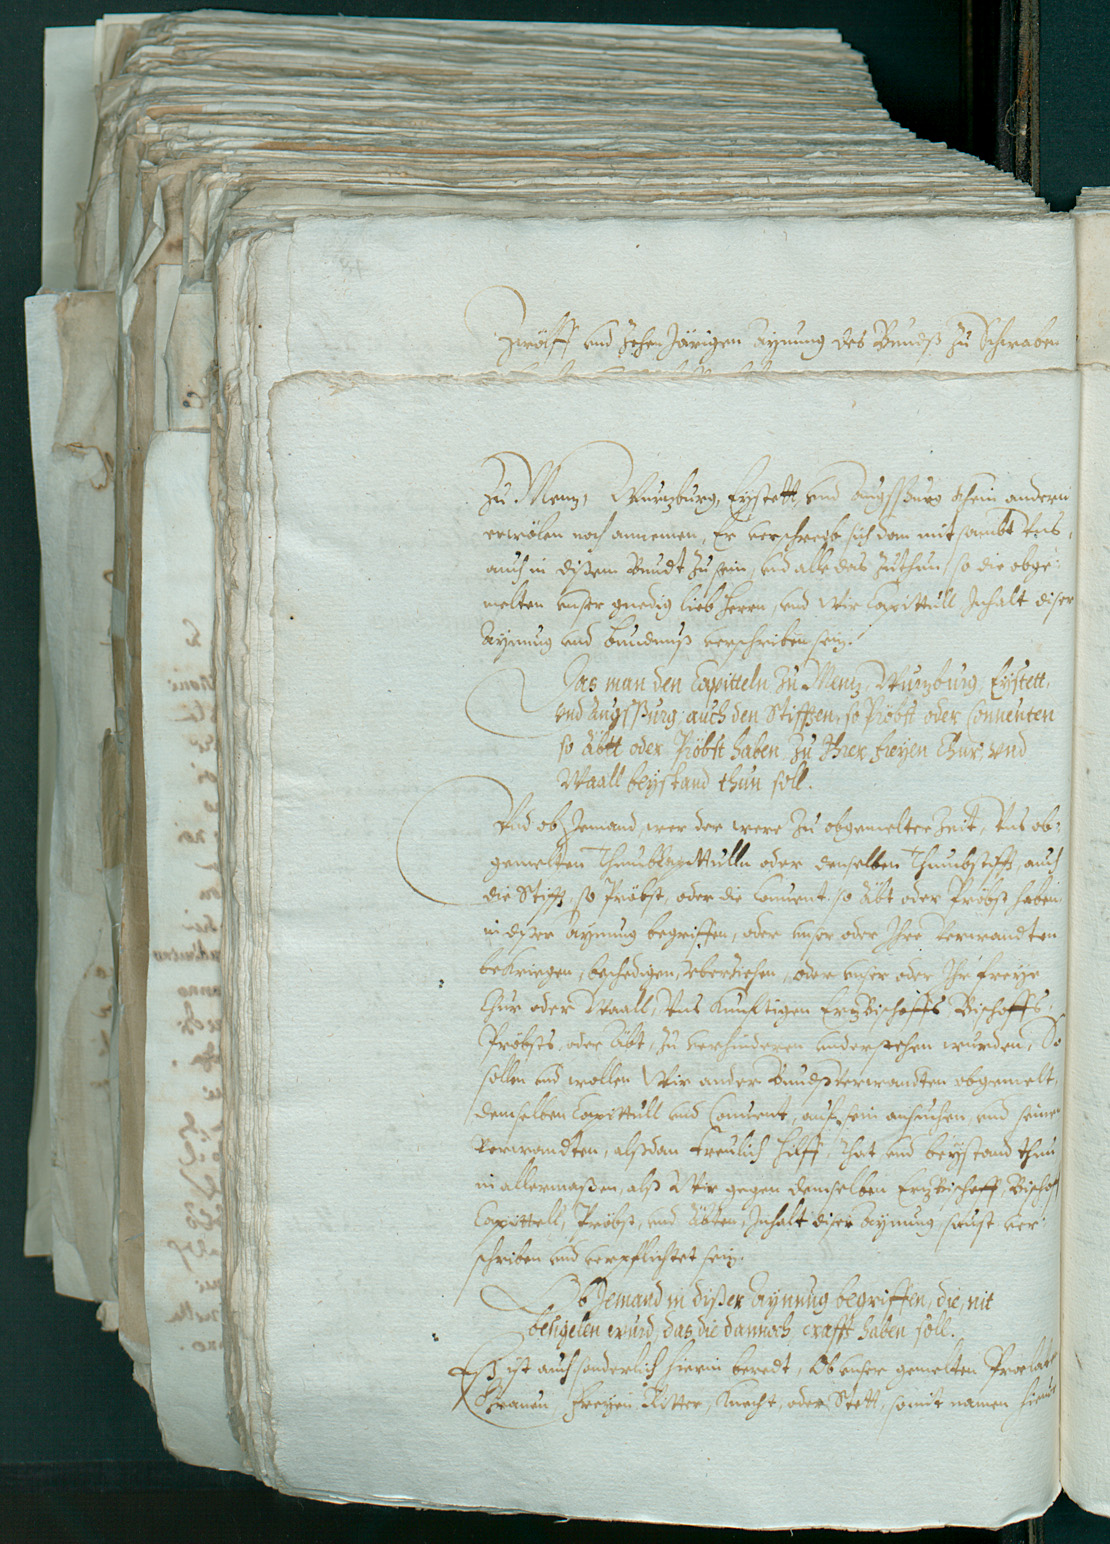 Zwölff vnd Zehen Järigen Aynung des Bundß Zu Schwaben
Zu Menz, Wurzburg, Eystett, vnd Augspurg khein andern
erwölen noch annemen, Er verschreib sich dan mit sambt Vns,
auch in disem Bundt Zu sein, vnd alle das Zuthun, so die obge¬
melten vnser gnedig lieb Herrn, vnd Wir Capittull Inhalt diser
Aynung vnd Bundnuß verschriben sein.
Das man den Capitteln Zu Menz, Wurzburg, Eystett,
vnd Augspurg, auch den Stifften, so Pröbst oder Connenten
so Äbtt oder Pröbst haben Zu Ihrer freyen Chur, vnd
Waall beystand thun soll.
Vnd ob Jemand, wer der were Zu obgemelter Zeit, Vns ob¬
gemelten Thumbkapittulln oder denselben Thumbstifft, auch
die Stifft, so Pröbst, oder die Conuent, so Äbt oder Pröbst haben
in diser Aynung begriffen, oder vnser oder Ihre Verwandten
bekriegen, beschedigen, Vberziehen, oder vnser oder Ihr freye
Chur oder Waall, Vns Kunfftigen ErzBischoffs, Bischoffs,
Pröbsts, oder Äbt, Zu verhinderen vnderstehen wurden, So
sollen vnd wollen Wir ander Bundßverwandten obgemelt,
demselben Capittull vnd Conuent, auf sein ansuchen, vnd seinen
Verwandten, alßdan treulich Hilff, That vnd beystand thun
in allermaßen, alß Wir gegen demselben ErzBischoff, Bischoff
Capittell, Pröbst, vnd Äbten, Inhalt diser Aynung, sunst ver¬
schriben vnd verpflichtet sein.
Ob Jemand in dißer Aynung begriffen, die, nit
besigelen wurd, das die dannoch crafft haben soll.
Eß ist auch sonderlich hierin beredt, Ob vnser gemelten Prælaten
Grauen, Freyen, Ritter, Knecht, oder Stett, so mit namen